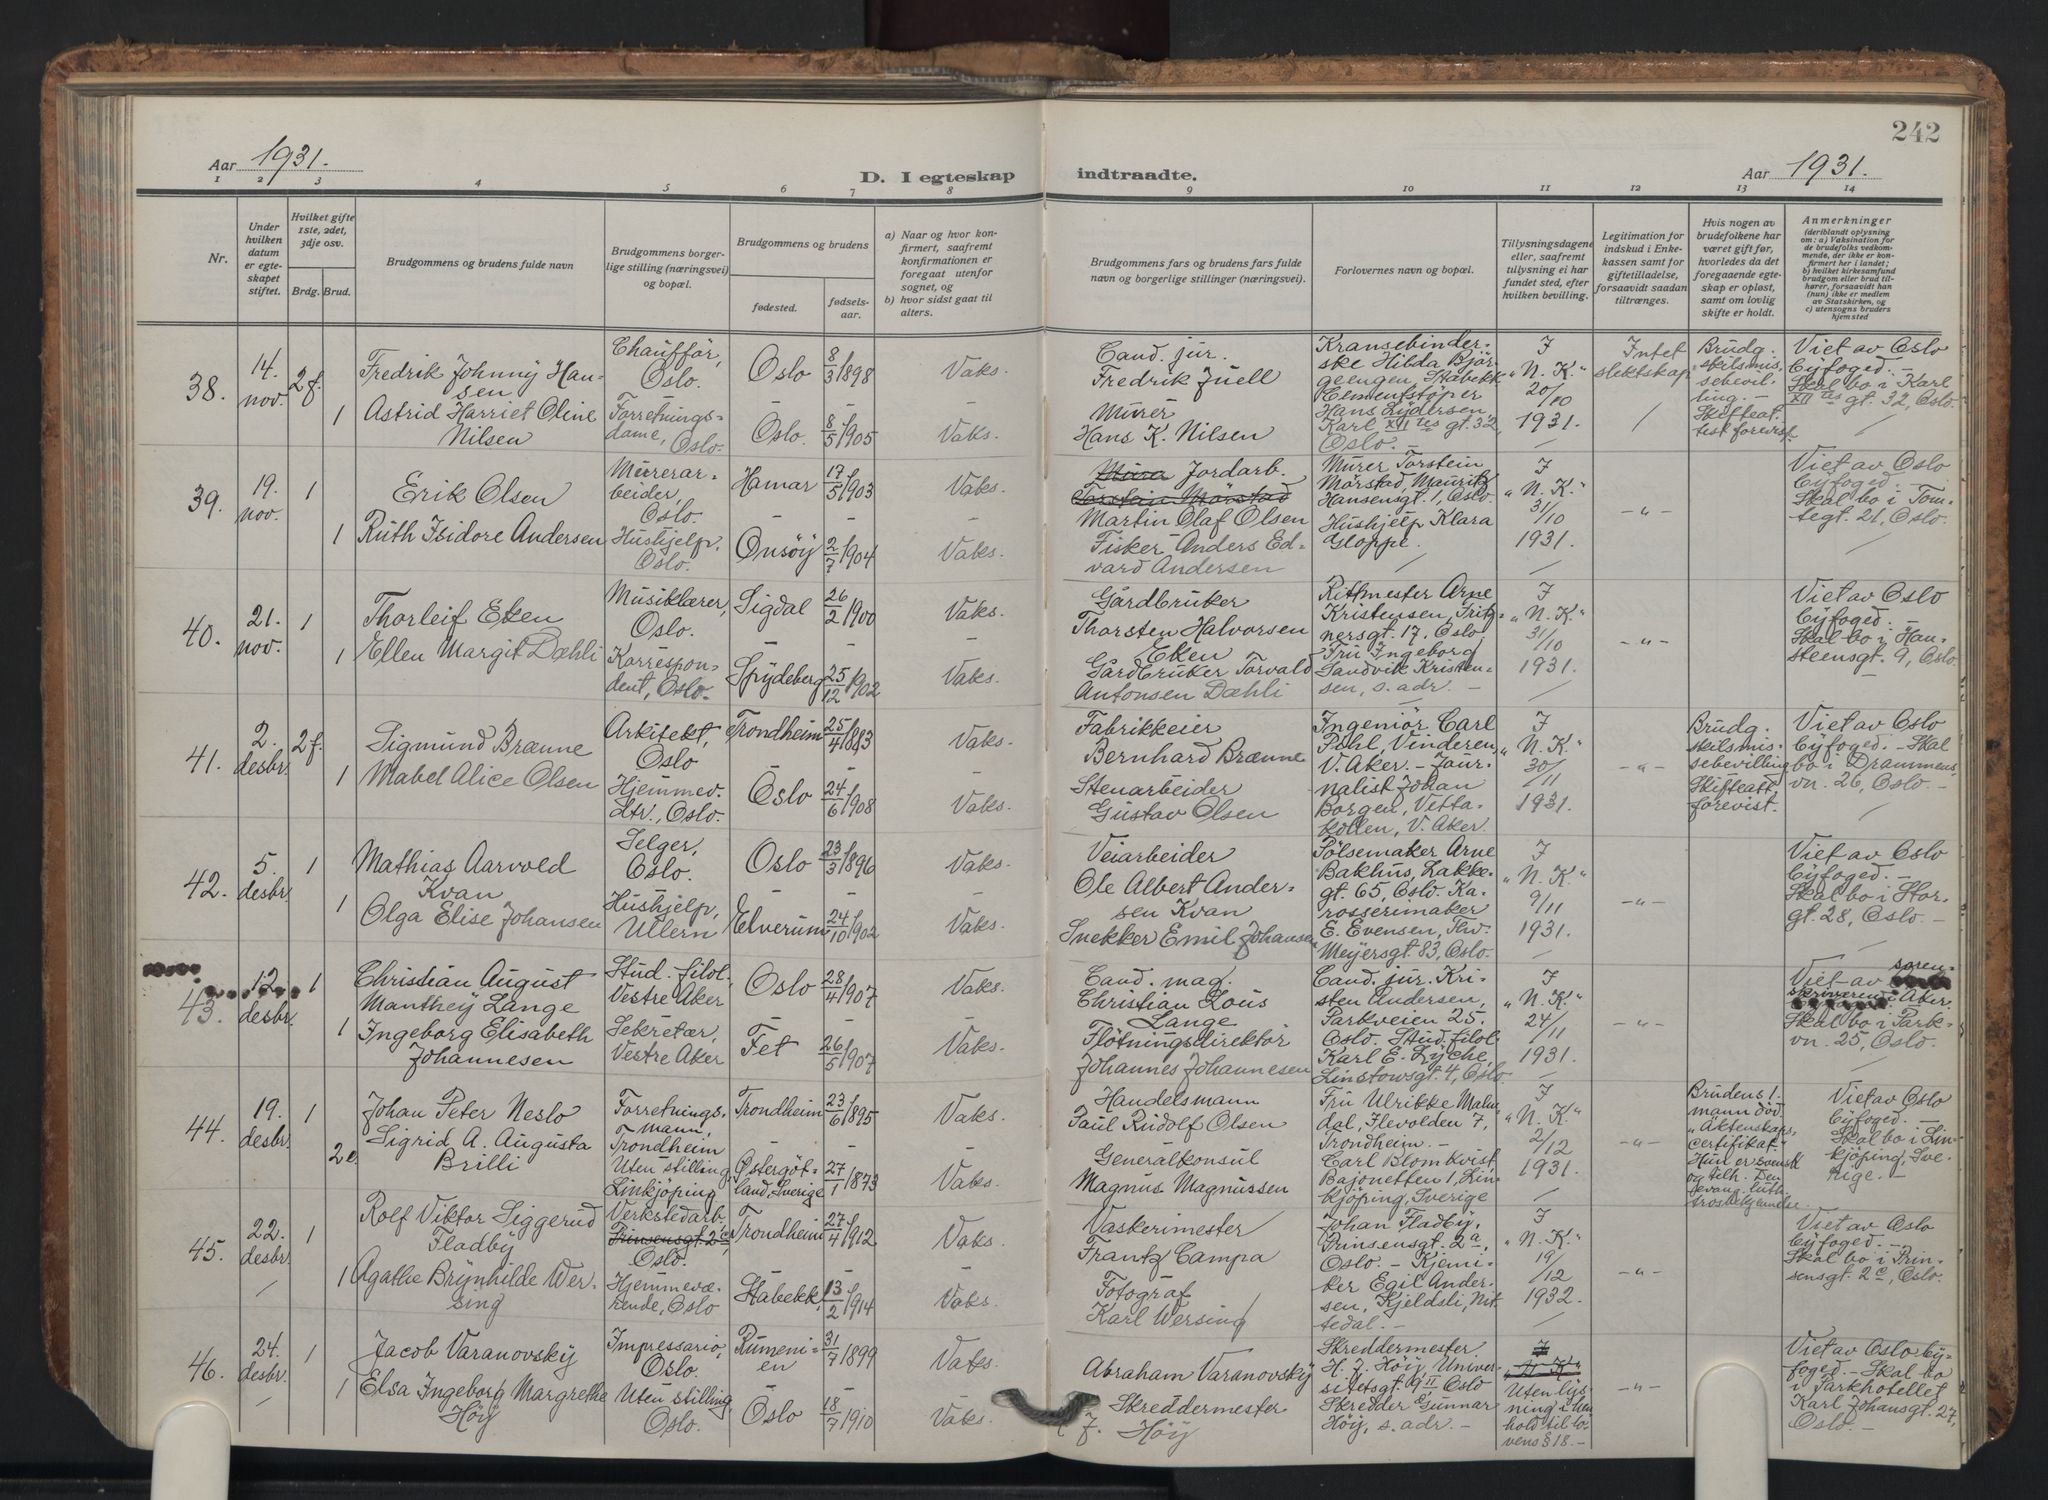 242
Aar 1931.
D. I egteskap indtraadte.
Aar 1931.
1 2 3 4 5 6 7 8 9 10 11 12 13 14
Nr.
Under hvilken datum er egteskapet stiftet.
Hvilket gifte 1ste, 2det, 3dje osv.
Brdg. Brud.
Brudgommens og brudens fulde navn
Brudgommens borgerlige stilling (næringsvei) og bopæl.
Brudgommens og brudens
fødested.
fødselsaar.
a) Naar og hvor konfirmert, saafremt konfirmationen er foregaat utenfor sognet, og
b) hvor sidst gaat til alters.
Brudgommens fars og brudens fars fulde navn og borgerlige stillinger (næringsvei).
Forlovernes navn og bopæl.
Tillysningsdagene eller, saafremt tillysning ei har fundet sted, efter hvilken bevilling.
Legitimation for indskud i Enkekassen samt for giftetilladelse, forsaavidt saadan tiltrænges.
Hvis nogen av brudefolkene har været gift før, hvorledes da det foregaaende egteskap er opløst, samt om lovlig skifte er holdt.
Anmerkninger
(deriblandt oplysning om: a) Vaksination for de brudefolks vedkommende, der ikke er konfirmert her i landet; b) hvilket kirkesamfund brudgom eller brud tilhører, forsaavidt han (hun) ikke er medlem av Statskirken, og c) utensogns bruders hjemsted
38.
14. nov.
2 f.
Fredrik Johnny Hansen
Chauffør, Oslo.
Oslo
8/3 1898
Vaks.
Cand. jur. Fredrik Juell
Kransebinderske Hilda Bjørgeengen, Stabekk
Cementstøper Hans Lydersen, Karl XII tes gt. 32, Oslo.
I „N. K.“ 20/10 1931.
Intet slektskap
Brudg. skilsmissebevilling. – Skifteattest forevist.
Viet av Oslo Byfoged. – Skal bo i Karl XII tes gt. 32, Oslo.
1
Astrid Harriet Oline Nilsen
Forretningsdame, Oslo.
Oslo.
8/5 1905
Vaks.
Murer Hans K. Nilsen
39.
19. nov.
1
Erik Olsen
Murerarbeider, Oslo.
Hamar
17/5 1903
Vaks.
Murer Jordarb.
Torstein Mørstad
Martin Olaf Olsen
Murer Torstein Mørstad, Mauritz Hansensgt. 1, Oslo.
Hushjelp Klara Gloppe.
I „N. K.“ 31/10 1931.
– „ –
Viet av Oslo Byfoged. – Skal bo i Tomtegt. 21, Oslo.
1
Ruth Isidore Andersen
Hushjelp, Oslo.
Onsøy
2/7 1904
Vaks.
Fisker Anders Edvard Andersen
40.
21. nov.
1
Thorleif Eken
Musiklærer, Oslo.
Sigdal
26/2 1900
Vaks.
Gårdbruker Thorsten Halvorsen Eken
Rittmester Arne Kristensen, Fritznersgt. 17, Oslo,
Fru Ingeborg Sandvik Kristensen, s. adr. –
I „N. K.“ 31/10 1931.
– „ –
Viet av Oslo Byfoged. – Skal bo i Hansteensgt. 9, Oslo.
1
Ellen Margit Dæhli
Korrespondent, Oslo.
Spydeberg
25/12 1902
Vaks.
Gårdbruker Torvald Antonsen Dæhli
41.
2. desbr.
2 f.
Sigmund Brænne
Arkitekt, Oslo
Trondheim
25/4 1883
Vaks.
Fabrikkeier Bernhard Brænne
Ingeniør Carl Pohl, Vinderen, V. Aker. – Journalist Johan Borgen, Vettakollen, V. Aker.
I „N. K.“ 30/11 1931.
– „ –
Brudg. skilsmissebevilling Skifteatt. forevist.
Viet av Oslo Byfoged. – Skal bo i Drammensvn. 26, Oslo. –
1
Mabel Alice Olsen
Hjemmev. dtr., Oslo.
Oslo
24/6 1908
Vaks.
Stenarbeider Gustav Olsen
42.
5. desbr.
1
Mathias Aarvold Kvan
Selger, Oslo.
Oslo
23/3 1896
Vaks.
Veiarbeider Ole Albert Andersen Kvan
Pølsemaker Arne Bakhus, Lakkegt. 65, Oslo. Karosserimaker E. Evensen, Thv. Meyersgt. 83, Oslo.
I „N. K.“ 9/11 1931.
– „ –
Viet av Oslo Byfoged. – Skal bo i Storgt. 28, Oslo. –
1
Olga Elise Johansen
Hushjelp, Ullern
Elverum
24/10 1902
Vaks.
Snekker Emil Johansen
43.
12. desbr.
1
Christian August Manthey Lange
Stud. filol. Vestre Aker
Oslo
28/4 1907
Vaks.
Cand. mag. Christian Lous Lange
Cand. jur. Kristen Andersen, Parkveien 25, Oslo. Stud. filol. Karl E. Lyche, Linstowsgt. 4, Oslo.
I „N. K.“ 24/11 1931.
– „ –
Viet av sorenskriveren i Aker. Skal bo i Parkvn. 25, Oslo.
1
Ingeborg Elisabeth Johannesen
Sekretær, Vestre Aker
Fet
26/5 1907
Vaks.
Fløtningsdirektør Johannes Johannesen
44.
19. desbr.
1
Johan Peter Neslo
Forretningsmann, Trondheim
Trondheim
23/6 1895
Vaks.
Handelsmann Paul Rudolf Olsen
Fru Ulrikke Malmdal, Ilevolden 7, Trondheim. – Carl Blomkvist, Bajonetten 1, Linkjøping, Sverige
I „N. K.“ 2/12 1931.
– „ –
Brudens 1. mann død. „Äktenskapscertifikat“ Hun er svensk og tilh. Den evang. luth. trosbekjennelse.
Viet av Oslo Byfoged. – Skal bo i Linkjøping, Sverige. –
2 e.
Sigrid A. Augusta Brilli
Uten stilling, Linkjöping
Østergötland, Sverige
27/1 1873
Vaks.
Generalkonsul Magnus Magnussen
45.
22. desbr.
1
Rolf Viktor Siggerud Fladby
Verkstedarb. Prinsensgt. 2c, Oslo.
Trondheim
27/4 1912
Vaks.
Vaskerimester Frantz Campa
Johan Fladby, Prinsensgt. 2a, Oslo. – Kjemiker Egil Andersen, Kjeldsli, Nittedal. –
I „N. K.“ 19/12 1932.
– „ –
Viet av Oslo Byfoged. – Skal bo i Prinsensgt. 2c, Oslo.
1
Agathe Brynhilde Wersing
Hjemmeværende, Oslo
Stabekk
13/2 1914
Vaks.
Fotograf Karl Wersing
46.
24. desbr.
1
Jacob Varanovsky
Impressario, Oslo.
Rumenien
31/7 1899
Vaks.
Abraham Varanovsky
Skreddermester H. J. Höiy, Universitetsgt. 9 II, Oslo
Skredder Gunnar Höiy, s. adr. –
I „N. K.“
Uten lysning i henhold til lovens § 18. –
– „ –
Viet av Oslo Byfoged. – Skal bo i Parkhotellet Karl Johansgt. 27, Oslo. –
1
Elsa Ingeborg Margrethe Höiy
Uten stilling, Oslo.
Oslo
18/7 1910
Vaks.
Skreddermester
J. Höiy